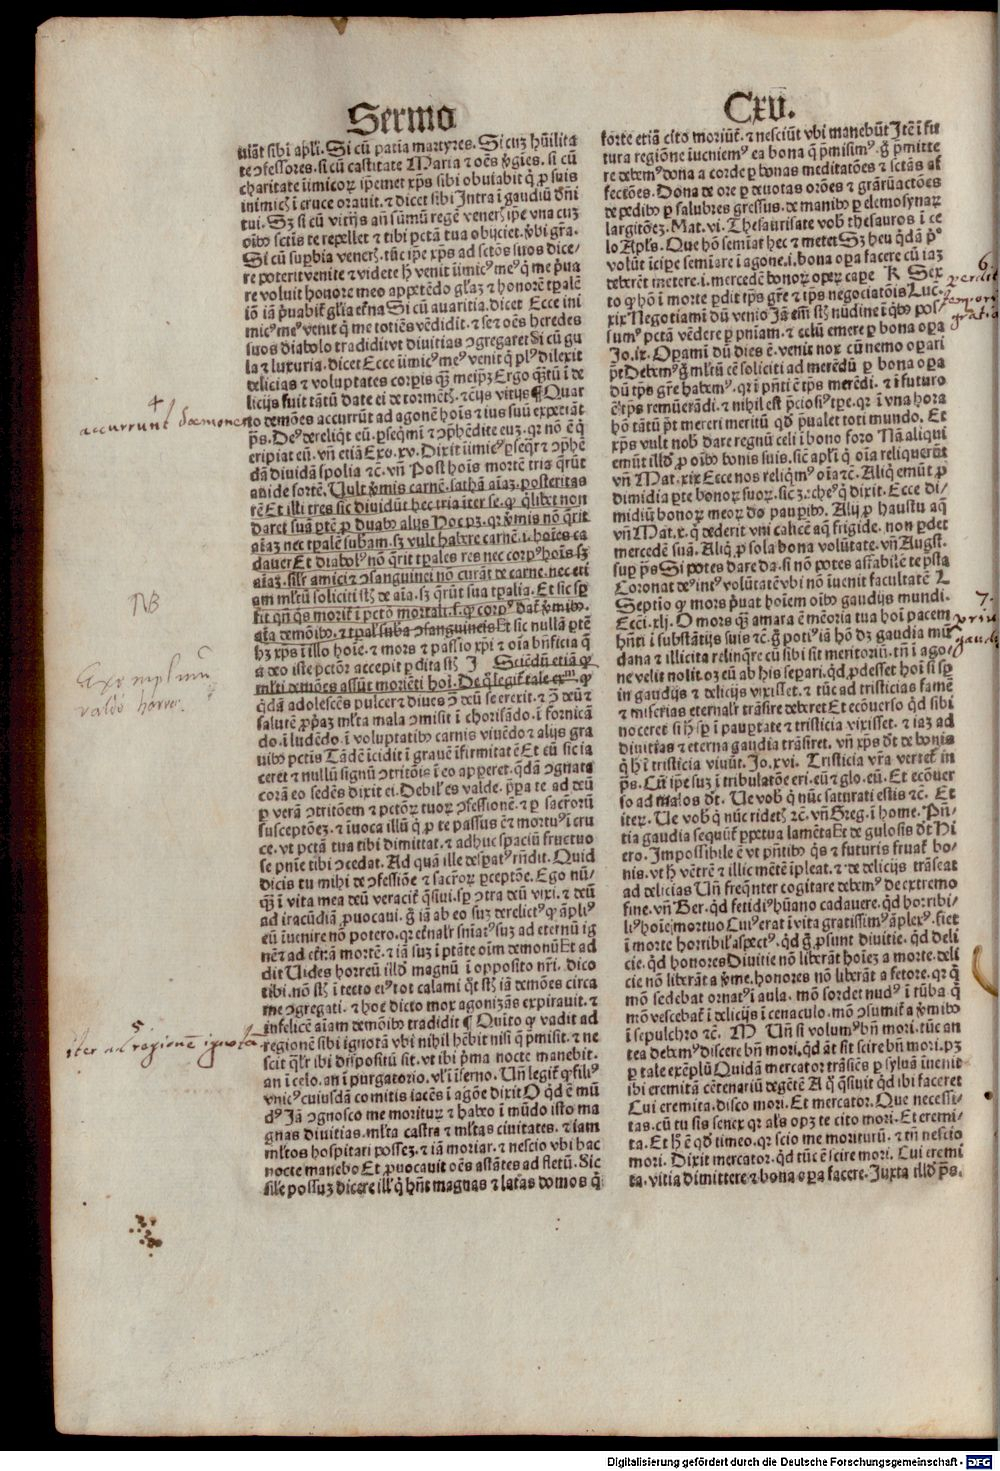 Sermo
Cxv.
uiāt sibi apl'i. Si cū patiā martyres. Si cuz hūilita
te ɔfessores. si cū castitate Maria & oēs ꝟgīes. si cū
charitate inimicoꝝ ipemet xp̄s sibi obuiabit q̇ ꝓ suis
inimicꝭ ī cruce orauit. & dicet sibi Intra ī gaudiū dn̄i
tui. Sꝫ si cū vitijs añ sūmū regē venerꝭ ipe vna cuz
oībꝰ sctis te repellet & tibi pctā tua obijciet. ꝟbi grā.
Si cū supbia venerꝭ. tūc ipe xp̄s ad sctōs suos dice/
re poterit venite & videte hͥ venit inimicꝰ meꝰ q̇ me pͥua
re voluit honore meo appetēdo glāꝫ & honorē tꝑalē
iō iā pͥuabitͬ gl'ia etͬna Si cū auaritia. dicet Ecce ini
micꝰ meꝰ venit q̇ me totiēs vēdidit. & se & oēs heredes
suos diabolo tradidit vt diuitias ɔgregaret Si cū gu
la & luxuria. dicet Ecce inimicꝰ meꝰ venit q̇ plꝰ dilexit
delicias & voluptates corpis q̄ꝫ meipꝫ Ergo q̄ꝫtū ī de
licijs fuit tātū date ei de tormētꝭ. & cͣ ijs vitijs ¶ Quar
to demōes accurrūt ad agonē hoīs & ius suū expetiāt
pͣs. Deꝰ dereliqͥt eū. ꝑseqͥmī & ɔphēdite euz. qꝛ nō ē q̇
eripiat eū. vn̄ etiā Exo. xv. Dixit inimicꝰ ꝑseqͬr & ɔphē
dā diuidā spolia &c̄. vn̄ Post hoīs mortē tria qͣrūt
auide sortē. Uult ꝟmis carnē. sathā aīaꝫ. posteritas
rē Et illi tres sic diuidūt hec tria īter se. qꝙ qͥlibet non
daret suā ꝑtē ꝓ duabꝰ alijs Hoc pꝫ. qꝛ ꝟmis nō qͣrit
aīaꝫ nec tꝑalē subam. sꝫ vult habere carnē. i. hoīes ca
dauer Et diabolꝰ nō qͣrit tꝑales res nec corpꝰ hoīs sꝫ
aīaꝫ. sil'r amici & ɔsanguinei nō curāt de carne. nec eti
am ml'tū soliciti sꝭ de aīa. sꝫ qͣrūt sua tꝑalia. Et sic sꝑ
fit qn̄ qͥs moritͬ ī pctō mortali. s. qꝙ corpꝰ datͬ ꝟmibꝰ.
aīa demōibꝰ. & tꝑal' suba ɔsanguineis Et sic nullā ꝑtē
hꝫ xp̄s ī illo hoīe. & mors & passio xp̄i & oīa bn̄ficia q̄
a deo iste pctōr accepit ꝑdita sꝭ J Sciēdū etiā qꝙ
ml'ti demōes assūt moriēti hoī. De q̇ legitͬ tale exm. qꝙ
qͥdā adolescēs pulcer & diues ɔͣ deū se erexit. & ɔͣ deū &
salutē ꝓpͥaꝫ ml'ta mala ɔmisit ī chorisādo. ī fornicā
do. ī ludēdo. ī voluptatibꝰ carnis viuēdo & alijs gra
uibꝰ pctis Tādē īcidit ī grauē īfirmitatē Et cū sic ia
ceret & nullū signū ɔtritōis ī eo apperet. qͥdā ɔgnata
corā eo sedēs dixit ei. Debil' es valde. p̄ꝑa te ad deū
ꝑ verā ɔtritōem & pctōꝝ tuoꝝ ɔfessionē. & ꝑ sacrōꝝ
susceptōeꝫ. & īuoca illū q̇ ꝓ te passus ē & mortuꝰ ī cru
ce. vt pctā tua tibi dimittat. & adhuc spaciū fructuo
se pn̄ie tibi ɔcedat. Ad quā ille despatͥs rn̄dit. Quid
dicis tu mihi de ɔfessiōe & sacrōꝝ ꝑceptōe. Ego nū/
q̄ꝫ ī vita mea deū veracitͬ qͣsiui. sꝑ ɔtra deū vixi. & deū
ad iracūdiā ꝓuocaui. gͦ iā ab eo suꝫ derelictꝰ qꝙ āpliꝰ
eū īuenire nō potero. qꝛ etͬnalr sn̄iatꝰ suꝫ ad eternū ig
nē & ad etͬnā mortē. & iā suꝫ ī ptāte oīm demonū Et ad
dit Uides horreū ill'd magnū ī opposito nr̄i. dico
tibi. nō sꝭ ī tecto eiꝰ tot calami qͦt sꝭ iā demōes circa
me ɔgregati. & hoc dicto mox agonizās expirauit. &
infelicē aīam demōibꝰ tradidit ¶ Quīto qꝙ vadit ad
regionē sibi ignotā vbi nihil hēbit nisi q̄ pͥmisit. & ne
scit qͣl'r ibi dispositū sit. vt ibi pͥma nocte manebit.
an ī celo. an ī purgatorio. vl' ī īferno. Un̄ legitͬ qꝙ filiꝰ
vnicꝰ cuiusdā comitis iacēs ī agōe dixit O qͥd ē mū
dꝰ Jā ɔgnosco me moriturꝝ & habeo ī mūdo isto ma
gnas diuitias. ml'ta castra & ml'tas ciuitates. & iam
ml'tos hospitari posseꝫ. & iā moriar. & nescio vbi hac
nocte manebo Et ꝓuocauit oēs astātes ad fletū. Sic
sil'e possuꝫ dicere ill' q̇ hn̄t magnas & latas domos q̇
forte etiā cito moriūtͬ. & nesciūt vbi manebūt Jtē ī fu
tura regiōne īueniemꝰ ea bona q̄ pͥmisimꝰ. gͦ pͥmitte
re debemꝰ dona a corde ꝑ bonas meditatōes & sctās af
fectōes. Dona de ore ꝑ deuotas orōes & grāꝝ actōes
de pedibꝰ ꝑ salubres gressus. de manibꝰ ꝑ elemosynaꝝ
largitōeꝫ. Mat. vi. Thesaurisate vob' thesauros ī ce
lo Apl's. Que hō semīat hec & metet Sꝫ heu qͥdā pͥº
volūt īcipe semīare ī agone. i. bona oꝑa facere cū iaꝫ
deberēt metere. i. mercedē bonoꝝ oꝑeꝝ cape K Sex
to qꝙ hō ī morte ꝑdit tp̄s grē & tp̄s negociatōis Luc.
xix Negotiamī dū venio Jā em̄ sꝭ nūdine ī qͥbꝰ pos/
sumꝰ pctā vēdere ꝑ pn̄iam. & celū emere ꝑ bona oꝑa
Jo. ix. Oꝑamī dū dies ē. venit nox cū nemo oꝑari
pt̄ Debemꝰ gͦ ml'tū cē soliciti ad merēdū ꝑ bona oꝑa
dū tp̄s grē habemꝰ. qꝛ ī pn̄ti ē tp̄s merēdi. & ī futuro
ē tp̄s remūerādi. & nihil est pͥciosiꝰ tꝑe. qꝛ ī vna hora
hō tātū pt̄ mereri meritū qd̄ pͥualet toti mundo. Et
xp̄s vult nob' dare regnū celi ī bono foro Nā aliqui
emūt ill'd ꝓ oībꝰ bonis suis. sic apl'i q̇ oīa reliquerūt
vn̄ Mat. xix Ecce nos reliqͥmꝰ oīa &c̄. Aliqͥ emūt ꝓ
dimidia ꝑte bonoꝝ suoꝝ. sic ꝫacheꝰ q̇ dixit. Ecce di/
midiū bonoꝝ meoꝝ do pauꝑibꝰ. Alij ꝓ haustu aq̄
vn̄ Mat. x. q̇ dederit vni calicē aq̄ frigide. non ꝑdet
mercedē suā. Aliqͥ ꝓ sola bona volūtate. vn̄ Augꝰt.
suꝑ pͣs Si potes dare da. si nō potes affabilē te pͣsta
Coronat deꝰ intꝰ volūtatē vbi nō īuenit facultatē L
Septīo qꝙ mors pͥuat hoīem oībꝰ gaudijs mundi.
Ecci. xlj. O mors qͣ amara ē mēoria tua hoī pacem
hn̄ti ī substātijs suis &c̄. gͦ potiꝰ iā hō dꝫ gaudia mū
dana & illicita relinqͣre cū sibi sit meritoriū. tn̄ ī ago/
ne velit nolit oꝫ eū ab his separi. qͥd ꝓdesset hoī si sꝑ
in gaudijs & delicijs vixisset. & tūc ad tristicias famē
& miserias eternalr trāsire deberet Et ecōuerso qͥd sibi
noceret si hͥ sꝑ ī pauꝑtate & tristicia vixisset. & iaꝫ ad
diuitias & eterna gaudia trāsiret. vn̄ xp̄s dt̄ de bonis
q̇ hͥ ī tristicia viuūt. Jo. xvi. Tristicia vr̄a vertetͬ in
pͣs. Cū ipe suꝫ ī tribulatōe eri. eū & glo. eū. Et ecōuer
so ad malos dt̄. Ue vob' q̇ nūc saturati estis &c̄. Et
iteꝝ. Ue vob' q̇ nūc ridetꝭ &c̄. vn̄ Greg. ī home. Pn̄/
tia gaudia sequūtͬ ꝑpetua lamēta Et de gulosis dt̄ Hi
ero. Impossibile ē vt pn̄tibꝰ qͥs & futuris fruatͬ bo/
nis. vt hͥ vētrē & illic mētē īpleat. & de delicijs trāseat
ad delicias Un̄ freqͣnter cogitare debemꝰ de extremo
fine. vn̄ Ber. qͥd fetidiꝰ hūano cadauere. qͥd horribi/
liꝰ hoīe mortuo Cuiꝰ erat ī vita gratissimꝰ āplexꝰ. fiet
ī morte horribil' aspectꝰ. qͥd gͦ ꝓsunt diuitie. qͥd deli
cie. qͥd honores Diuitie nō liberāt hoīeꝫ a morte. deli
cie nō liberāt a ꝟme. honores nō liberāt a fetore. qꝛ q̇
mō sedebat ornatꝰ ī aula. mō sordet nudꝰ ī tūba q̇
mō vescebatͬ ī delicijs ī cenaculo. mō ɔsumitͬ a ꝟmibꝰ
ī sepulchro &c̄. M Un̄ si volumꝰ bn̄ mori. tūc an
tea debemꝰ discere bn̄ mori. qͥd āt sit scire bn̄ mori. pꝫ
ꝑ tale exēplū Quidā mercator trāsiēs ꝑ syluā īuenit
ibi eremitā cētenariū degētē A q̇ qͣsiuit qͥd ibi faceret
Cui eremita. disco mori. Et mercator. Que necessi/
tas. cū tu sis senex qꝛ al's opꝫ te cito mori. Et eremi/
ta. Et hͥ ē qd̄ timeo. qꝛ scio me moriturū. & tn̄ nescio
mori. Dixit mercator. qͥd tūc ē scire mori. Cui eremi
ta. vitia dimittere & bona oꝑa facere. Juxta ill'd pͣs.
4
accurrunt dæmones
NB
Exemplum
valdè horren:
5
iter ad regionē ignotā
6.
perdit
tempori
gratia
7.
priu
gaudi
Digitalisierung gefördert durch die Deutsche Forschungsgemeinschaft - DFG